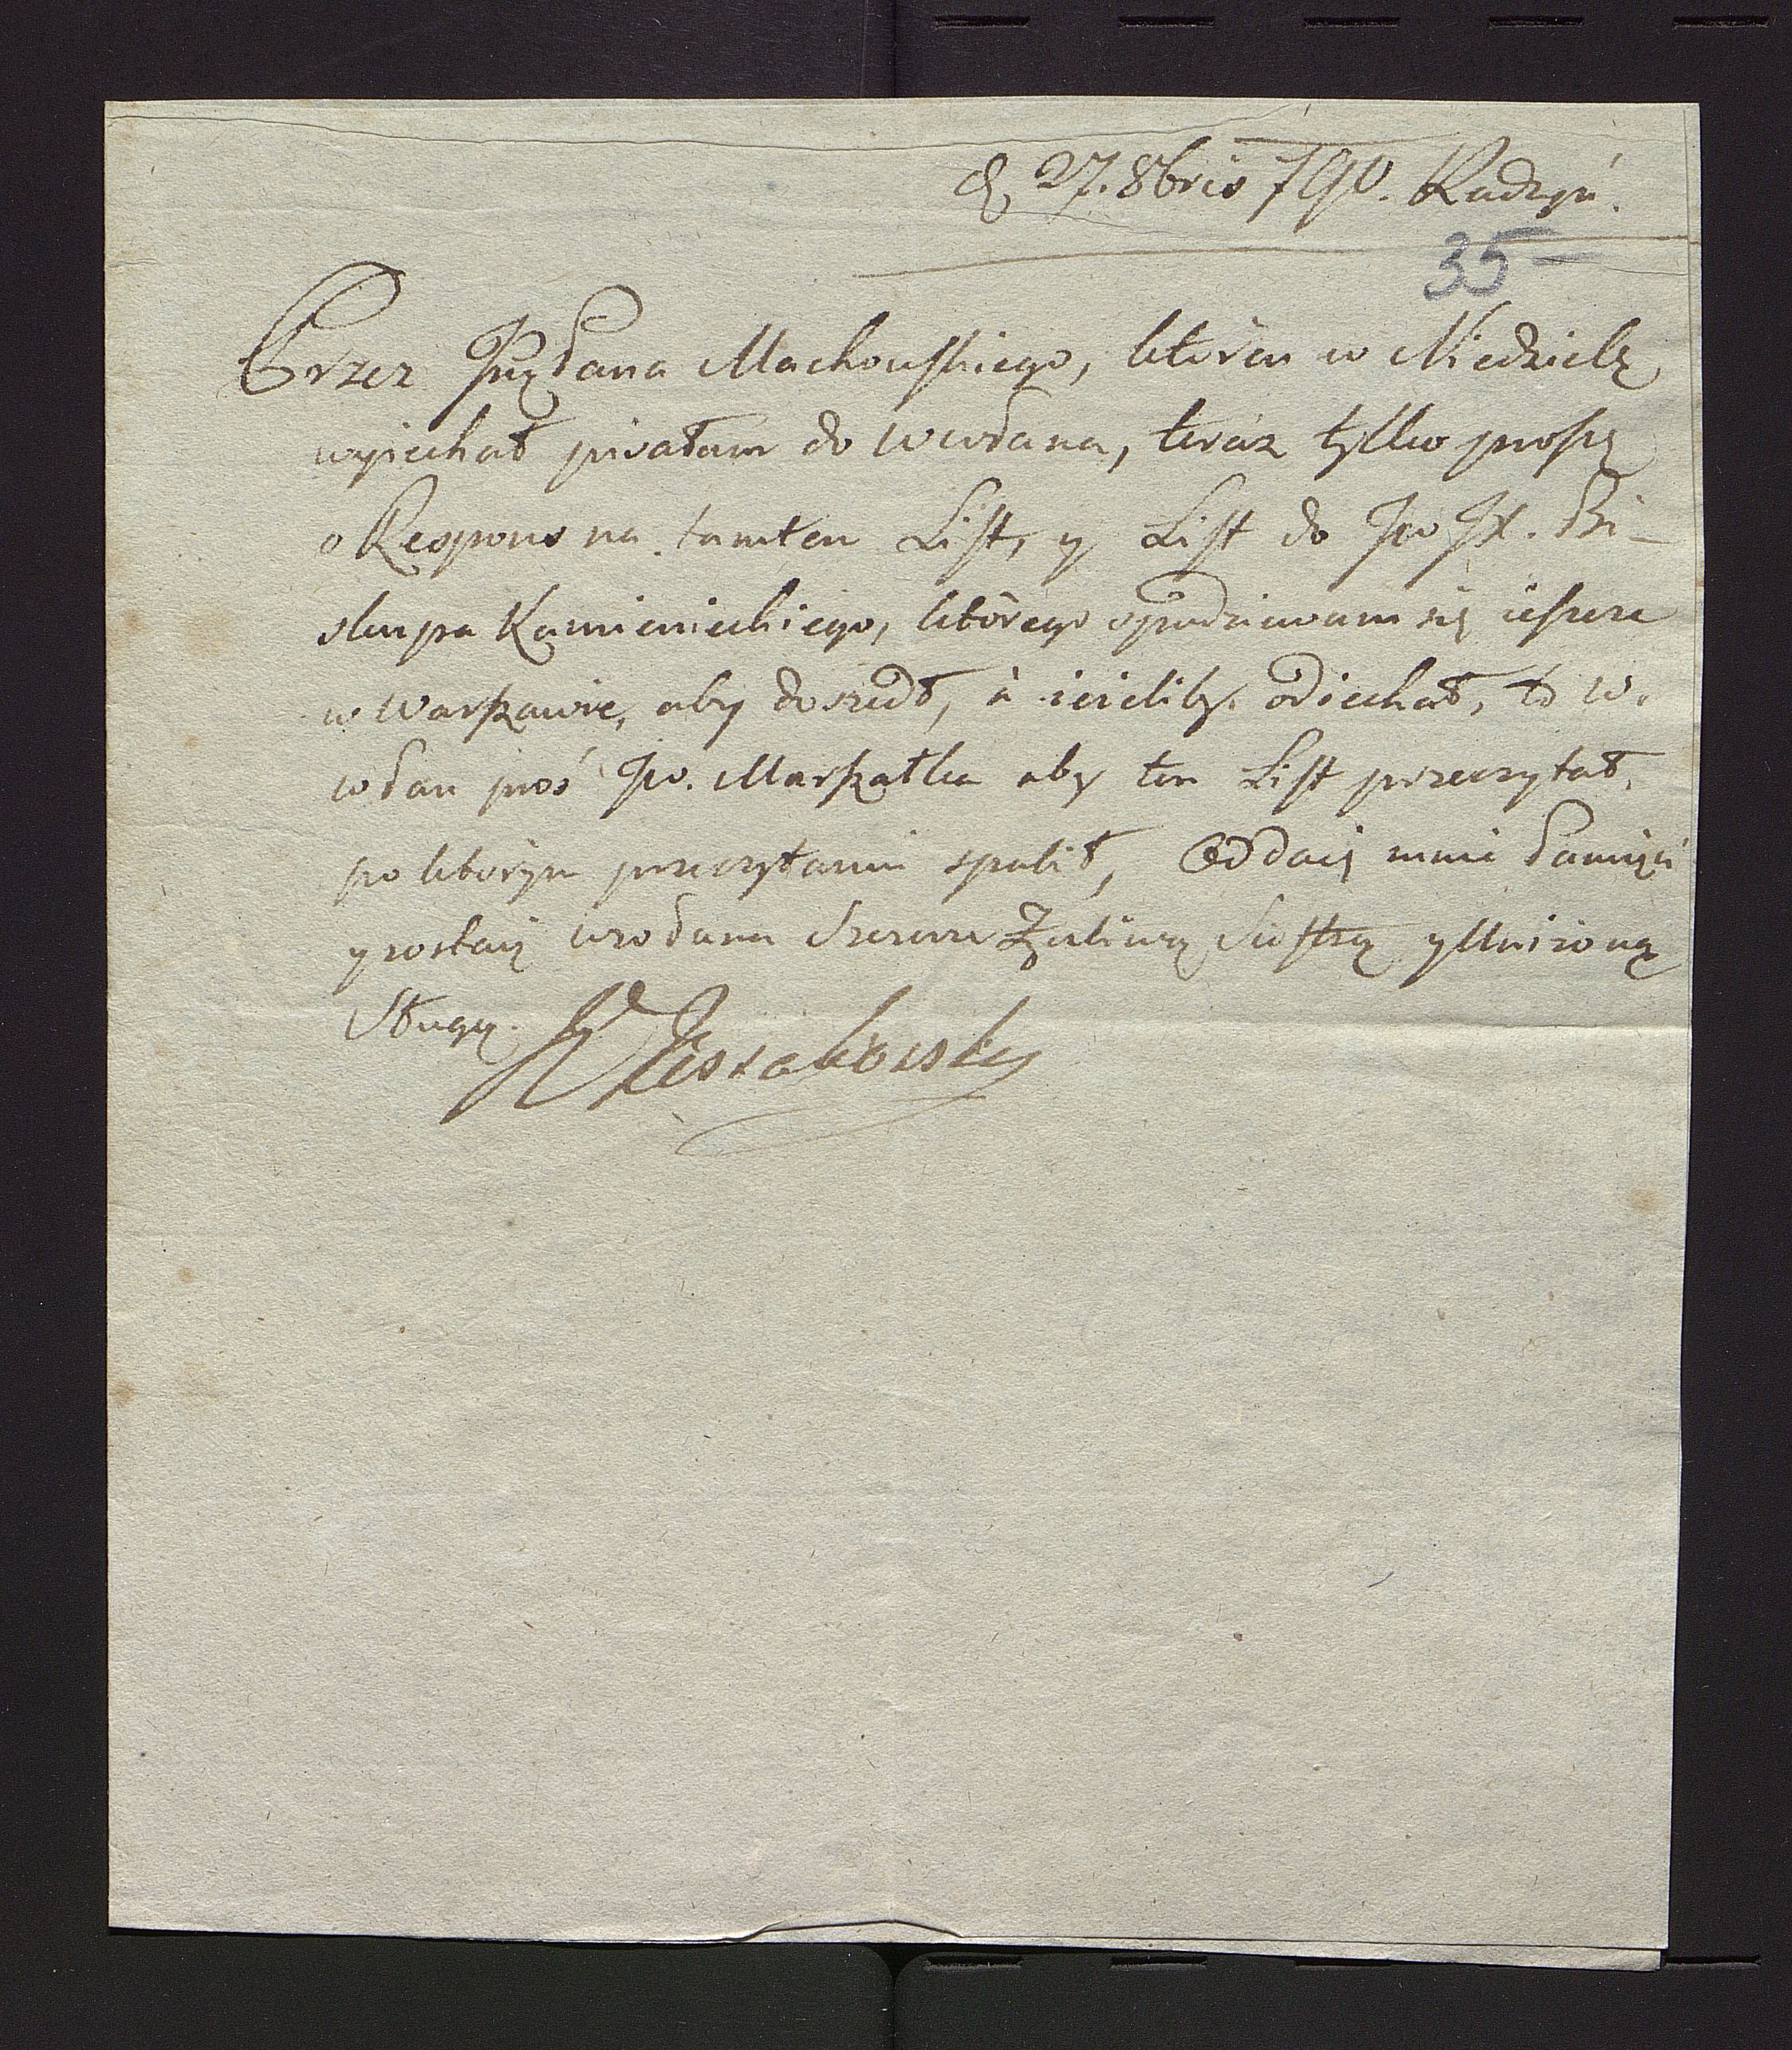 d. 27. 8bris 790. Radzyń.
35
Przez Jmę Pana Machowskiego, ktoren w Niedzielę
wyiechał pisałam do WWPana, teraz tylko proszę
o Respons na tamten List, y List do Jw JX. Bi-
skupa Kamienieckiego, ktorego spodziewam się ieszcze
w Warszawie, aby doszedł, à ieżeliby odiechał, to W.
WPan proś Jw. Marszałka aby ten List przeczytał,
po ktorym przeczytaniu spalił, Oddaię mnie Pamięci
y zostaię WWPana Szczerze Życliwą Siostrą y Uniżoną
Sługą.
Kossakowska